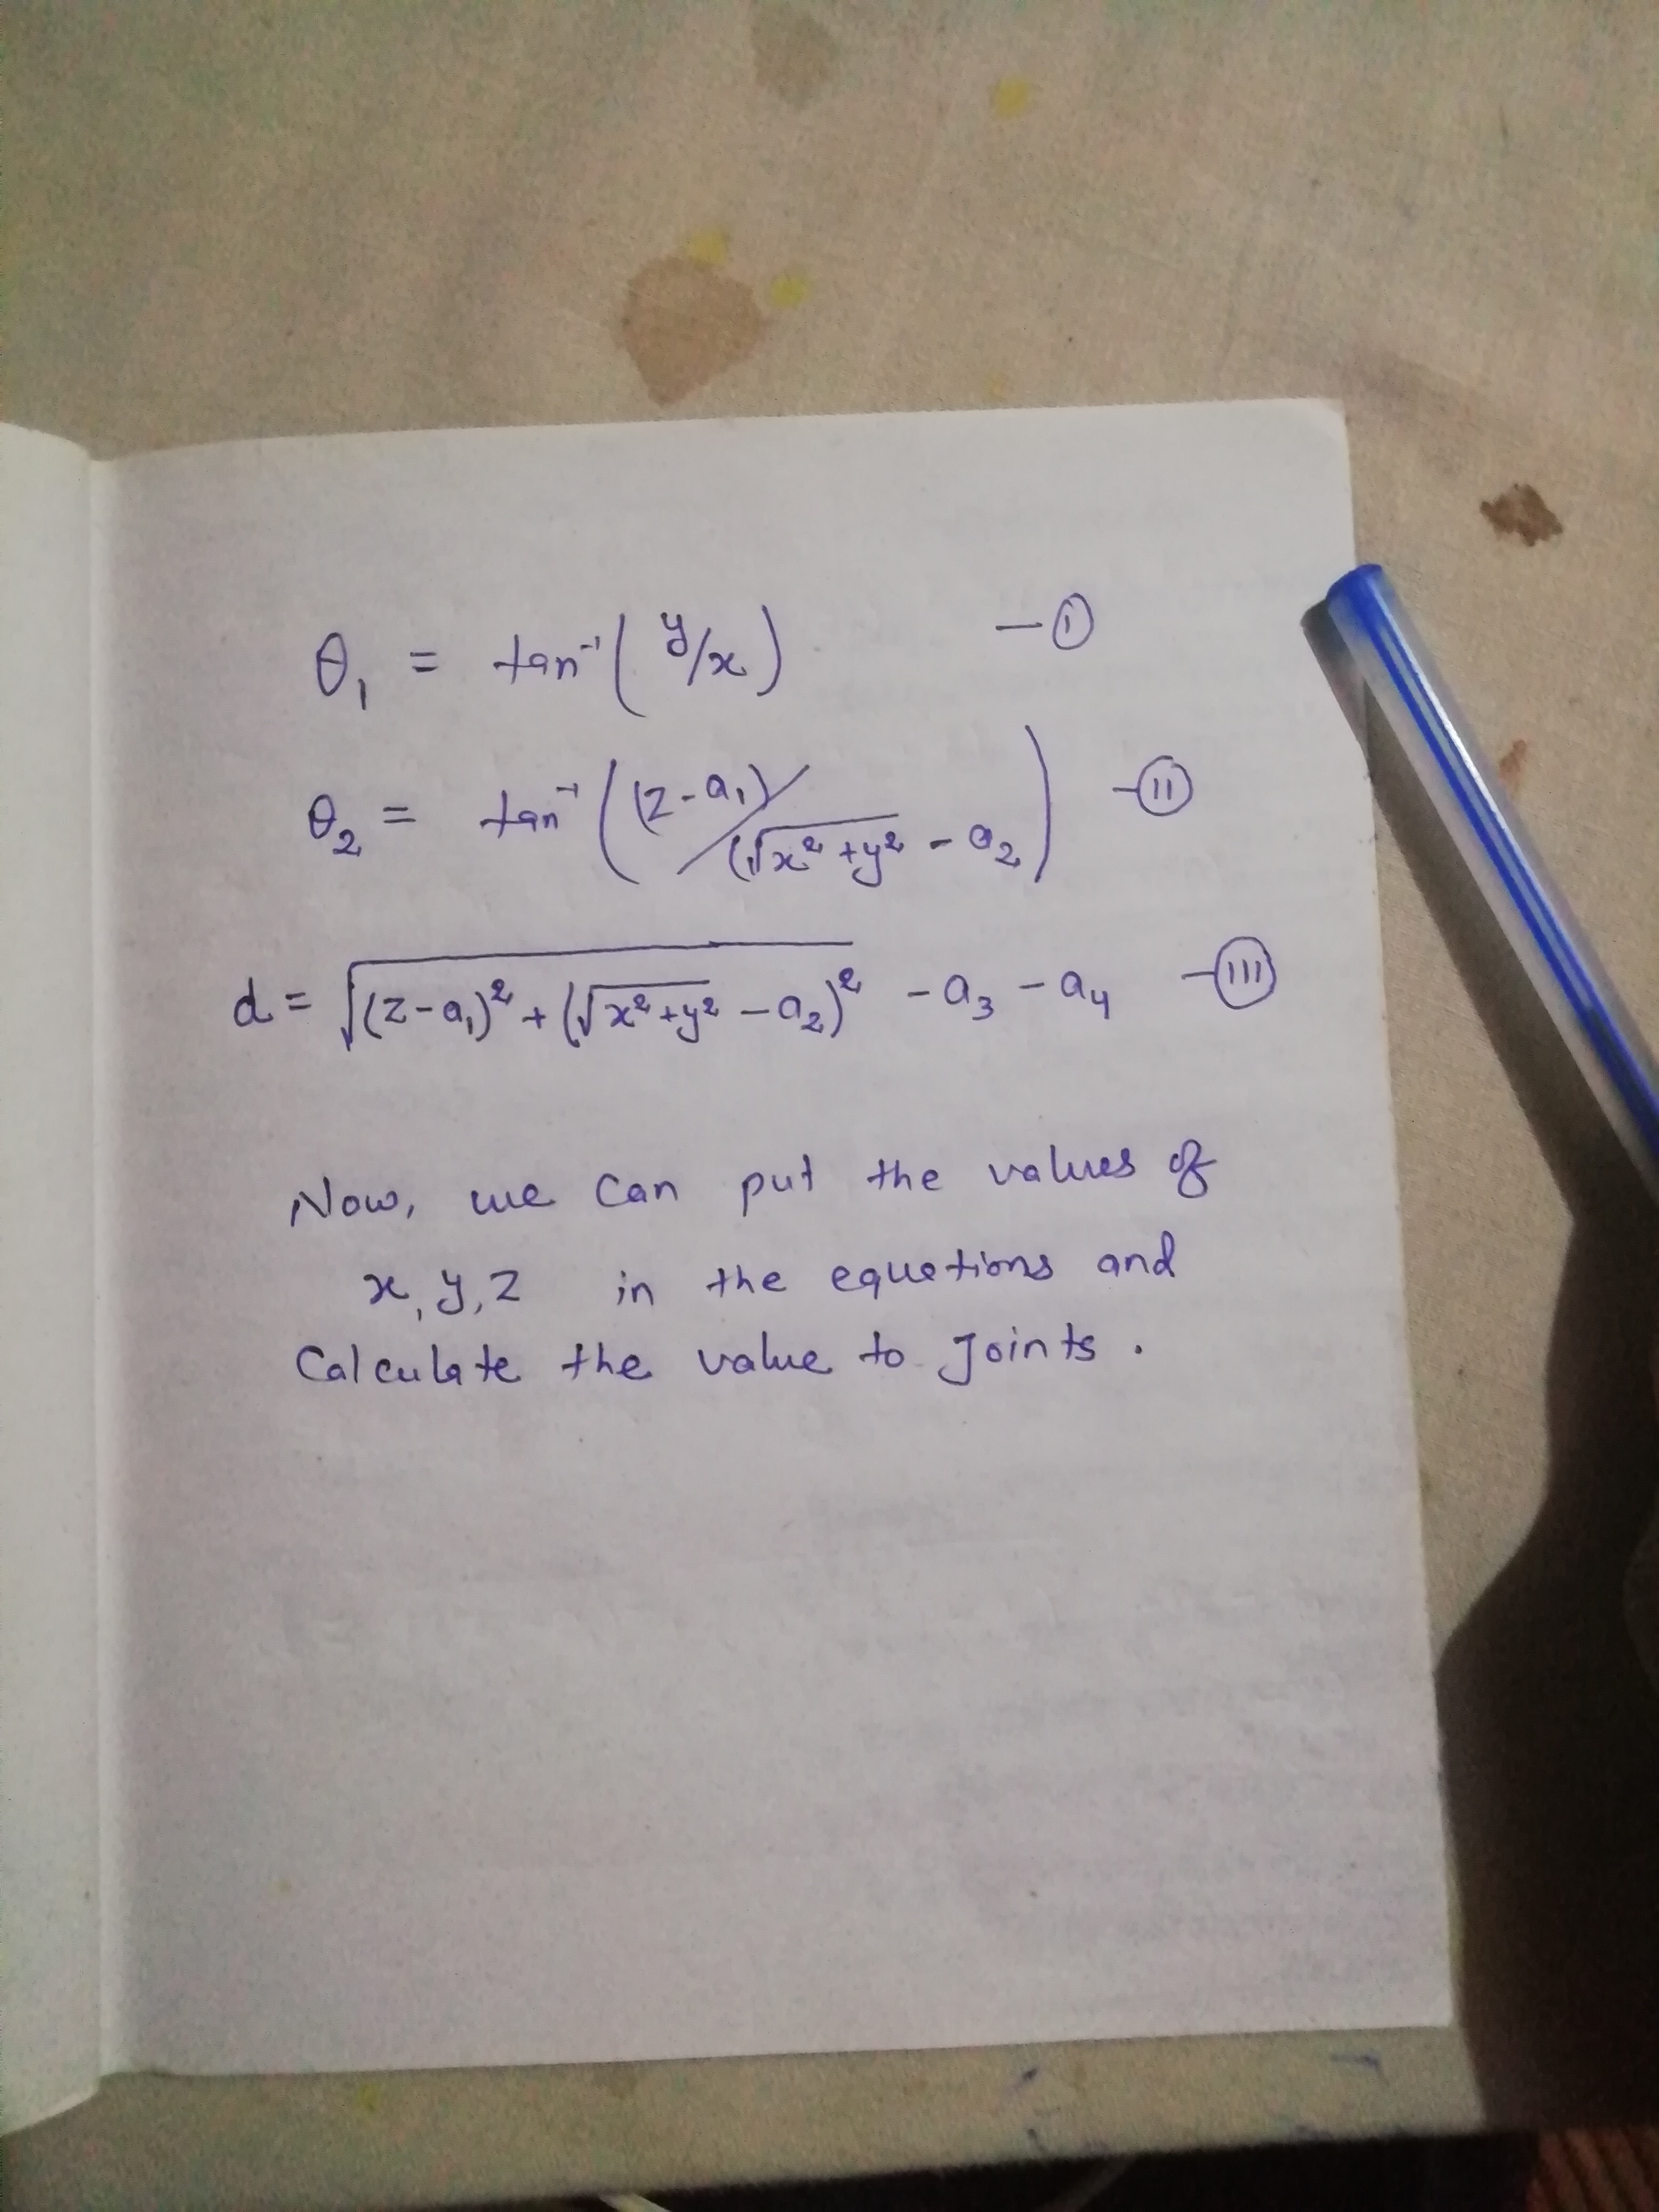 θ₁ = tan⁻¹( y/x ) — ①
θ₂ = tan⁻¹( (z-a₁)/(√(x²+y²) - a₂ ) — Ⓘⓘ
d = √((z-a₁)² + (√(x²+y²) - a₂)²) - a₃ - a₄ — (III)
Now, we can put the values of
x, y, z in the equations and
Calculate the value to Joints .